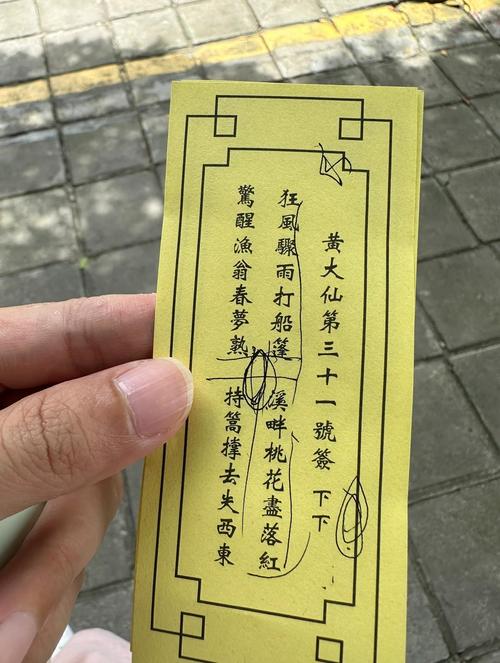 黃大仙第三十一號簽 下下
狂風驟雨打船篷 溪畔桃花盡落紅
驚醒漁翁春夢熟 持篙撐去失西東